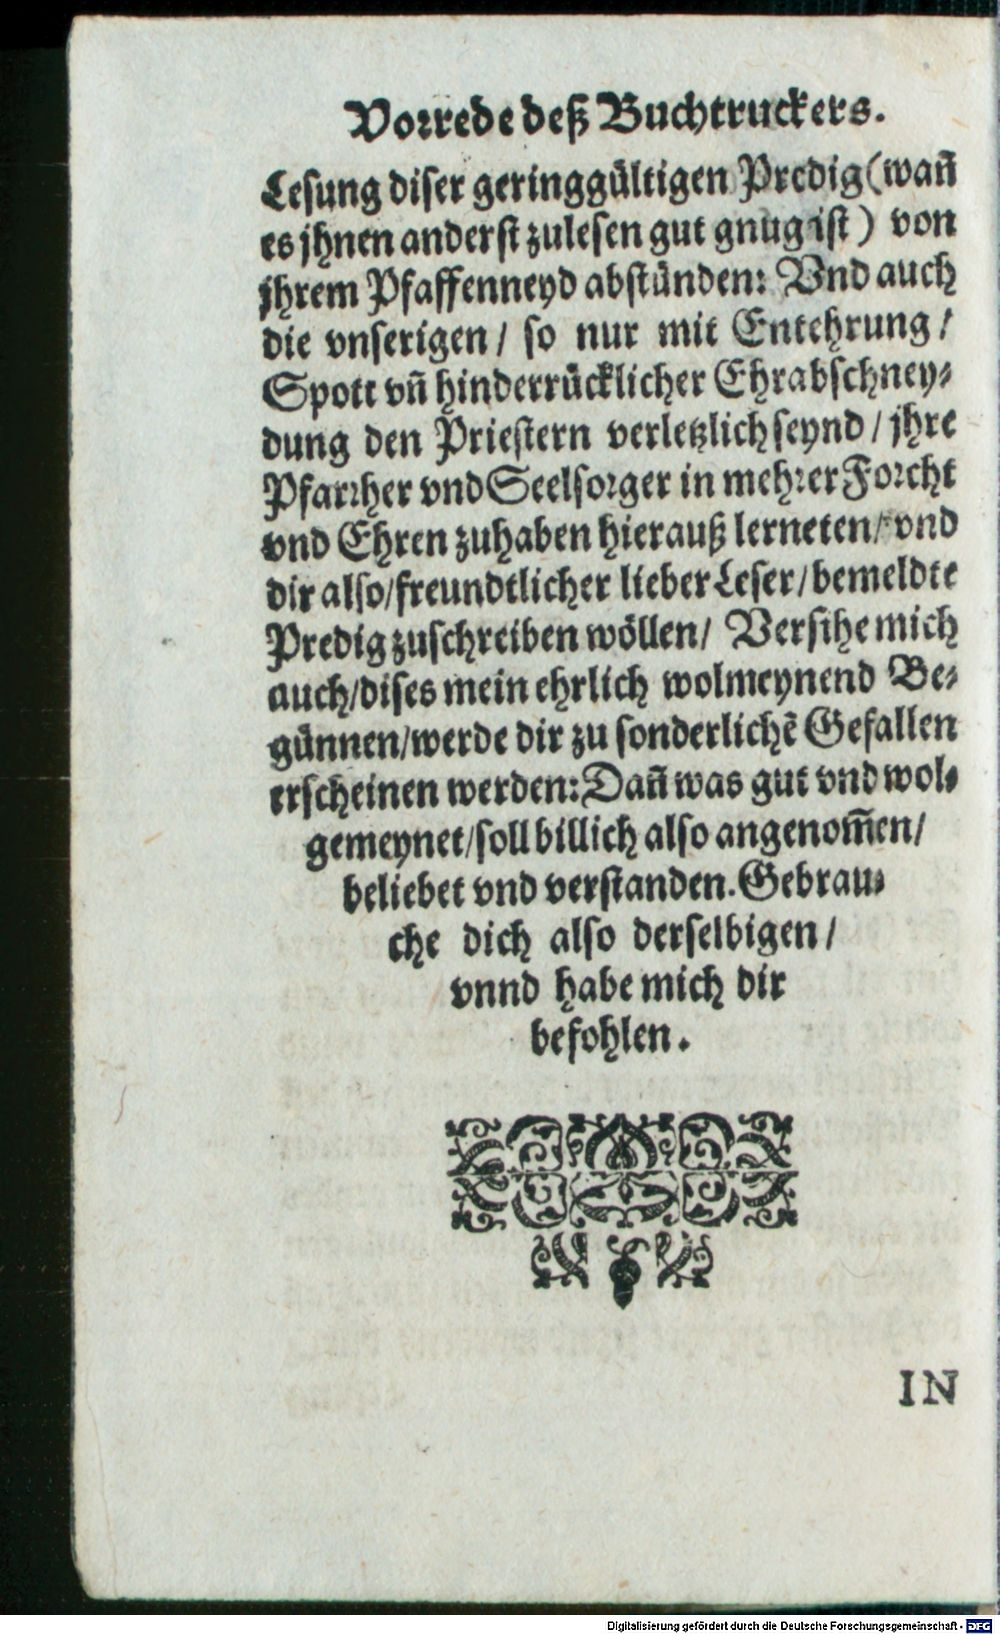 Vorrede deß Buchtruckers.
Lesung diser geringgültigen Predig (wañ
es jhnen anderst zulesen gut gnug ist) von
jhrem Pfaffenneyd abstünden: Vnd auch
die vnserigen / so nur mit Entehrung /
Spott vñ hinderrücklicher Ehrabschney⸗
dung den Priestern verletzlich seynd / jhre
Pfarrher vnd Seelsorger in mehrer Forcht
vnd Ehren zuhaben hierauß lerneten / vnd
dir also / freundtlicher lieber Leser / bemeldte
Predig zuschreiben wöllen / Versihe mich
auch / dises mein ehrlich wolmeynend Be⸗
günnen / werde dir zu sonderlichẽ Gefallen
erscheinen werden: Dañ was gut vnd wol⸗
gemeynet / soll billich also angenom̃en /
beliebet vnd verstanden. Gebrau⸗
che dich also derselbigen /
vnnd habe mich dir
befohlen.
IN
Digitalisierung gefördert durch die Deutsche Forschungsgemeinschaft - DFG